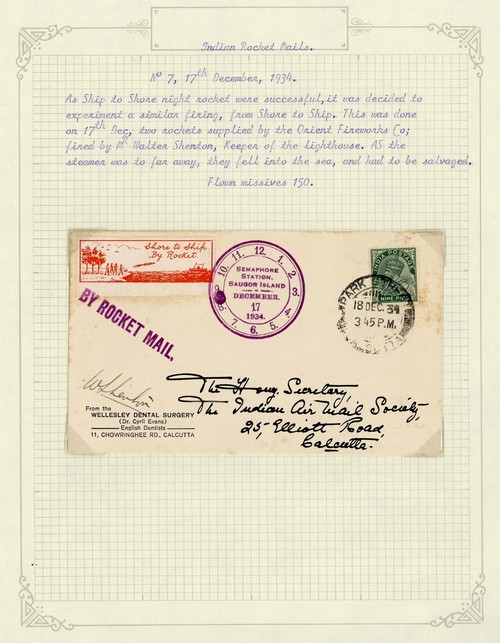 Indian Rocket Mails.
No 7, 17th December, 1934.
As Ship to Shore night rocket were successful, it was decided to
experiment a similar firing, from Shore to Ship. This was done
on 17th Dec, two rockets supplied by the Orient Fireworks Co;
fired by Mr Walter Shenton, Keeper of the lighthouse. AS the
steamer was to far away, they fell into the sea, and had to be salvaged.
Flown missives 150.
Shore to Ship
By Rocket.
10. 11. 12. 1. 2. 3. 4. 5. 6. 7. 8. 9.
SEMAPHORE
STATION.
SAUGOR ISLAND
DECEMBER.
17
1934.
INDIA POSTAGE
NINE PIES
PARK STREET
18 DEC. 34
3 45 P.M.
BY ROCKET MAIL.
W Shenton
From the
WELLESLEY DENTAL SURGERY
(Dr. Cyril Evans)
English Dentists
11, CHOWRINGHEE RD., CALCUTTA
The Hony. Secretary,
The Indian Air Mail Society,
25, Elliott Road,
Calcutta.